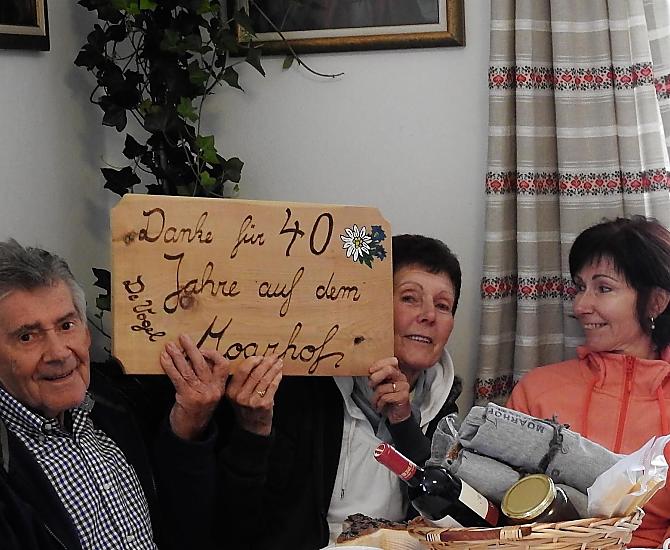 Danke für 40
Jahre auf dem
Moarhof
De Vogel
MOARHOF